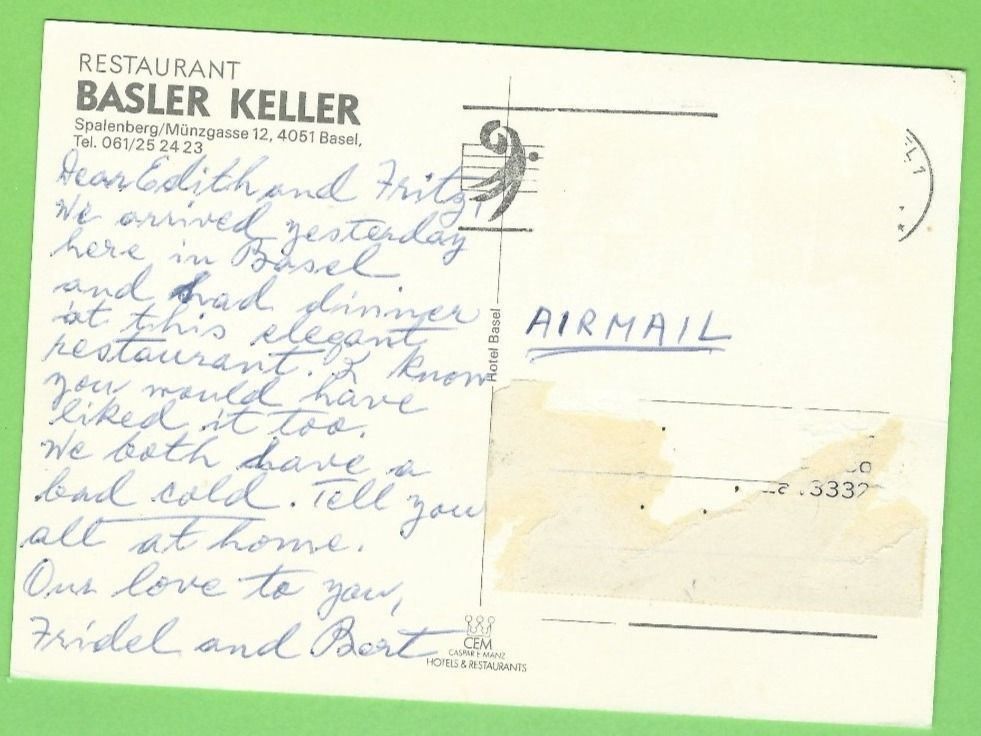 RESTAURANT
BASLER KELLER
Spalenberg/Münzgasse 12, 4051 Basel,
Tel. 061/25 24 23
Dear Edith and Fritz,
We arrived yesterday
here in Basel
and had dinner
at this elegant
restaurant. I know
you would have
liked it too.
We both have a
bad cold. Tell you
all at home.
Our love to you,
Fridel and Bert
Hotel Basel
CEM
CASPAR E. MANZ
HOTELS & RESTAURANTS
EL 1
AIRMAIL
co
3332